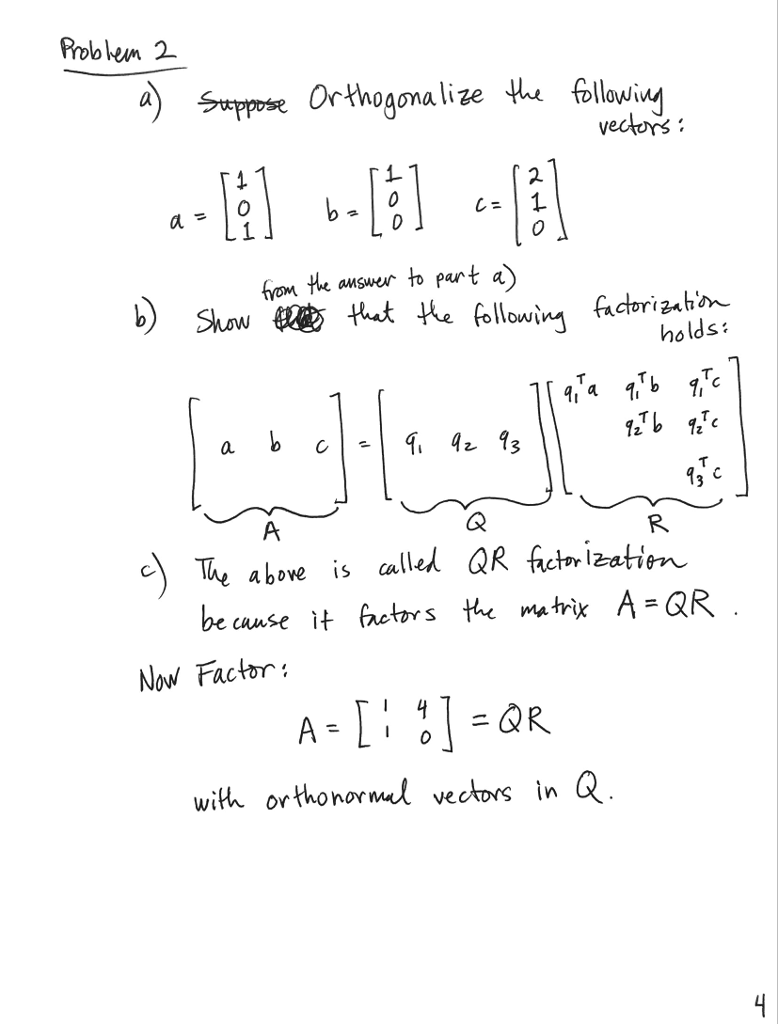 Problem 2
a) Suppose Orthogonalize the following
vectors:
a = [1 0 1] b = [1 0 0] c = [2 1 0]
from the answer to part a)
b) Show that the following factorization
holds:
[a b c] = [q₁ q₂ q₃] [q₁ᵀa q₁ᵀb q₁ᵀc
q₂ᵀb q₂ᵀc
q₃ᵀc]
A Q R
c) The above is called QR factorization
because it factors the matrix A = QR.
Now Factor:
A = [1 4
1 0] = QR
with orthonormal vectors in Q.
4